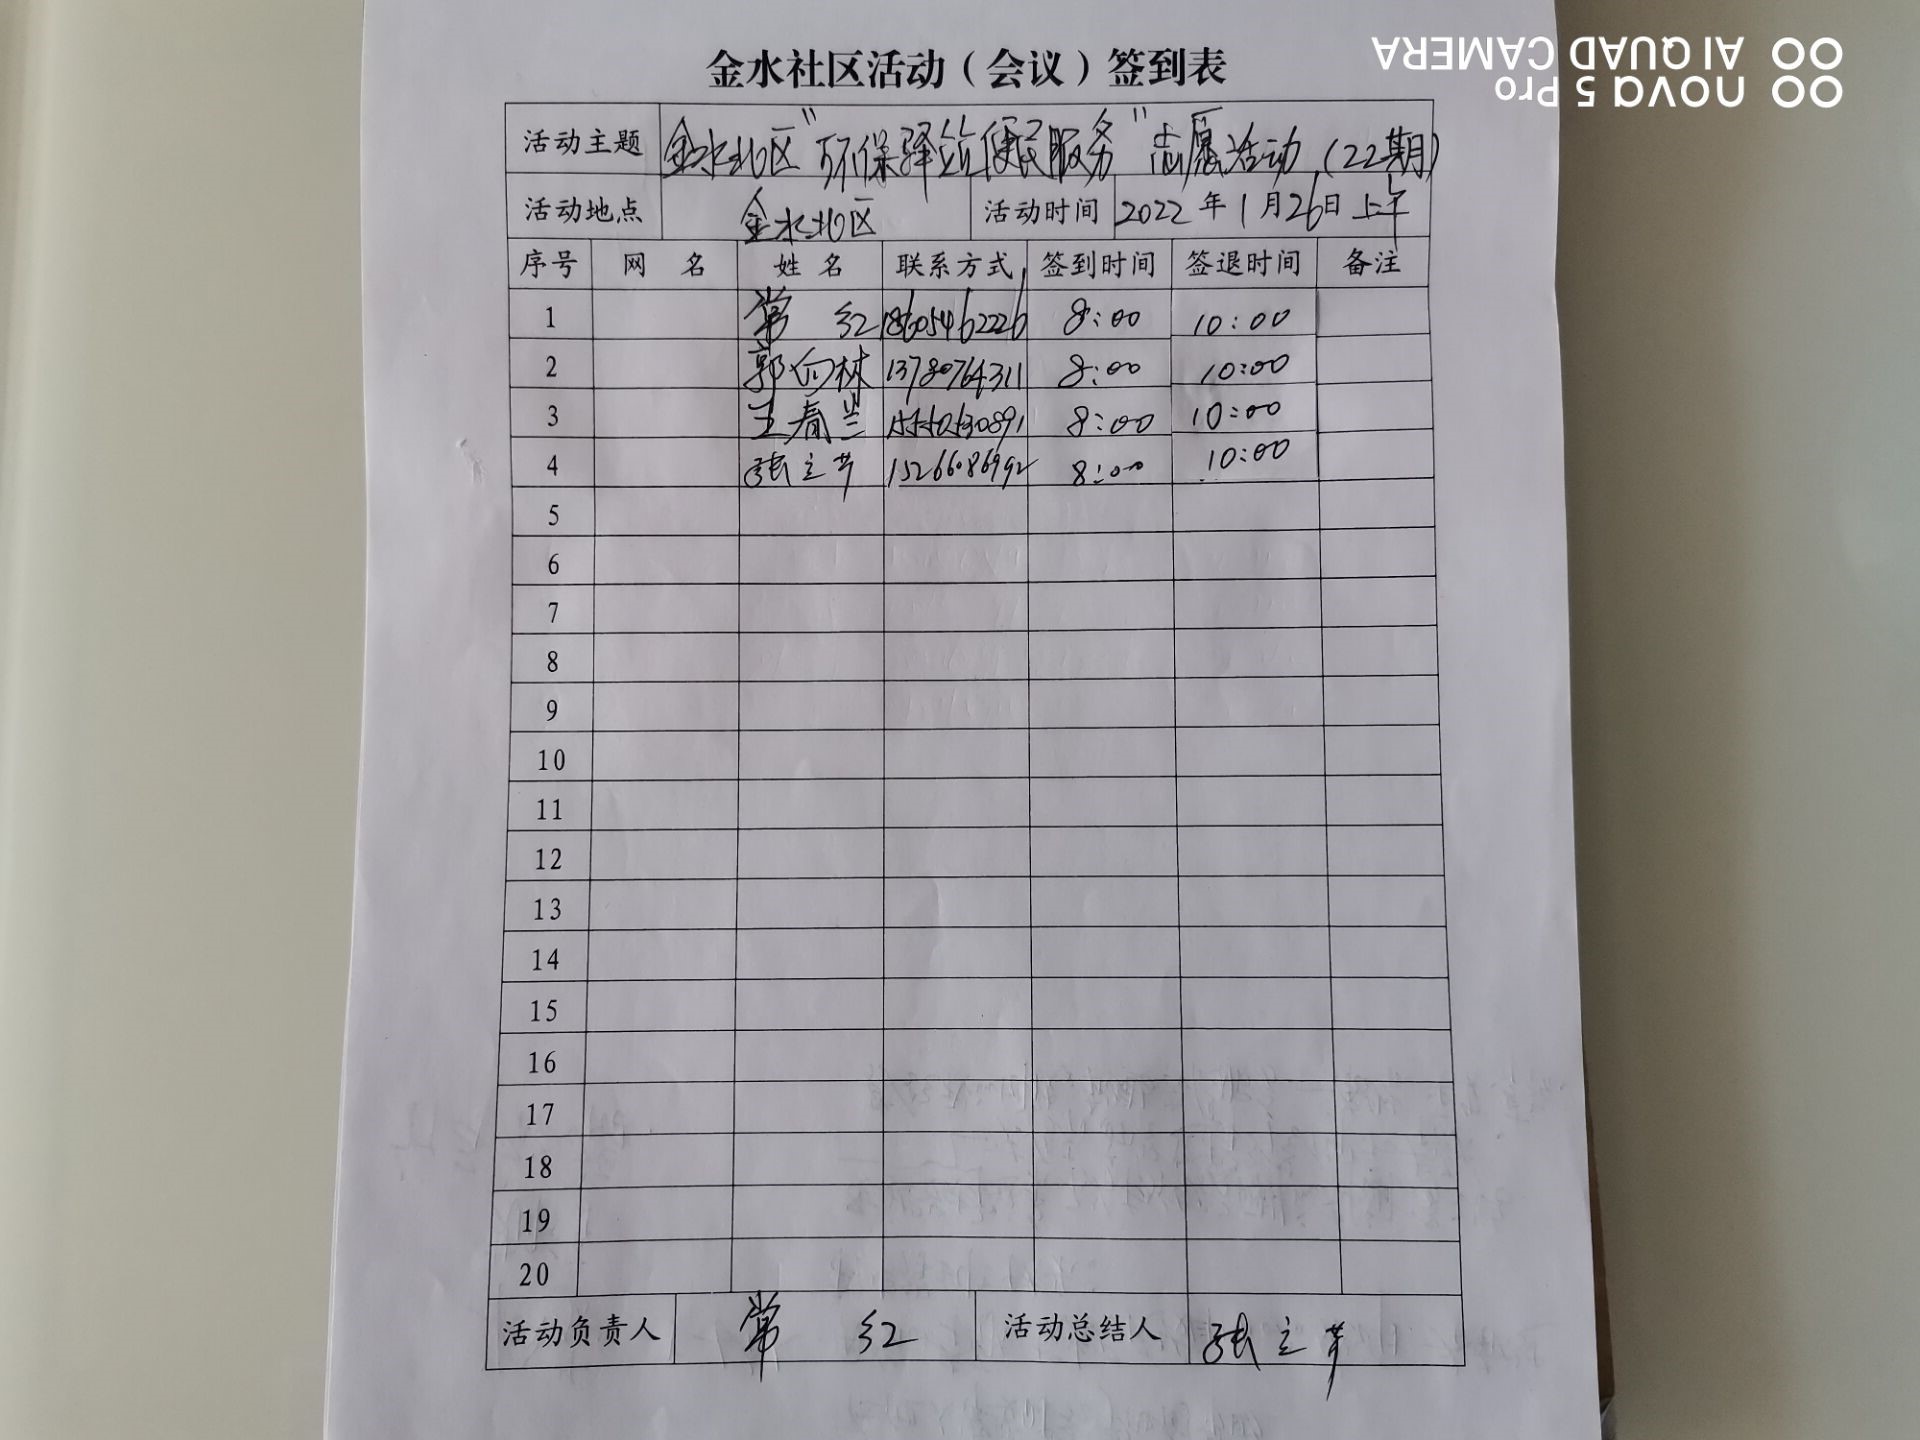 金水社区活动（会议）签到表
活动主题 金水北区“环保驿站便民服务”志愿活动（22期）
活动地点 金水北区 活动时间 2022年1月26日上午
序号 网名 姓名 联系方式 签到时间 签退时间 备注
1 常红 18605462226 8:00 10:00
2 郭向林 13780764311 8:00 10:00
3 王春兰 8:00 10:00
4 张立芹 15266086992 8:00 10:00
5
6
7
8
9
10
11
12
13
14
15
16
17
18
19
20
活动负责人 常红 活动总结人 张立芹
nova 5 Pro
AI QUAD CAMERA